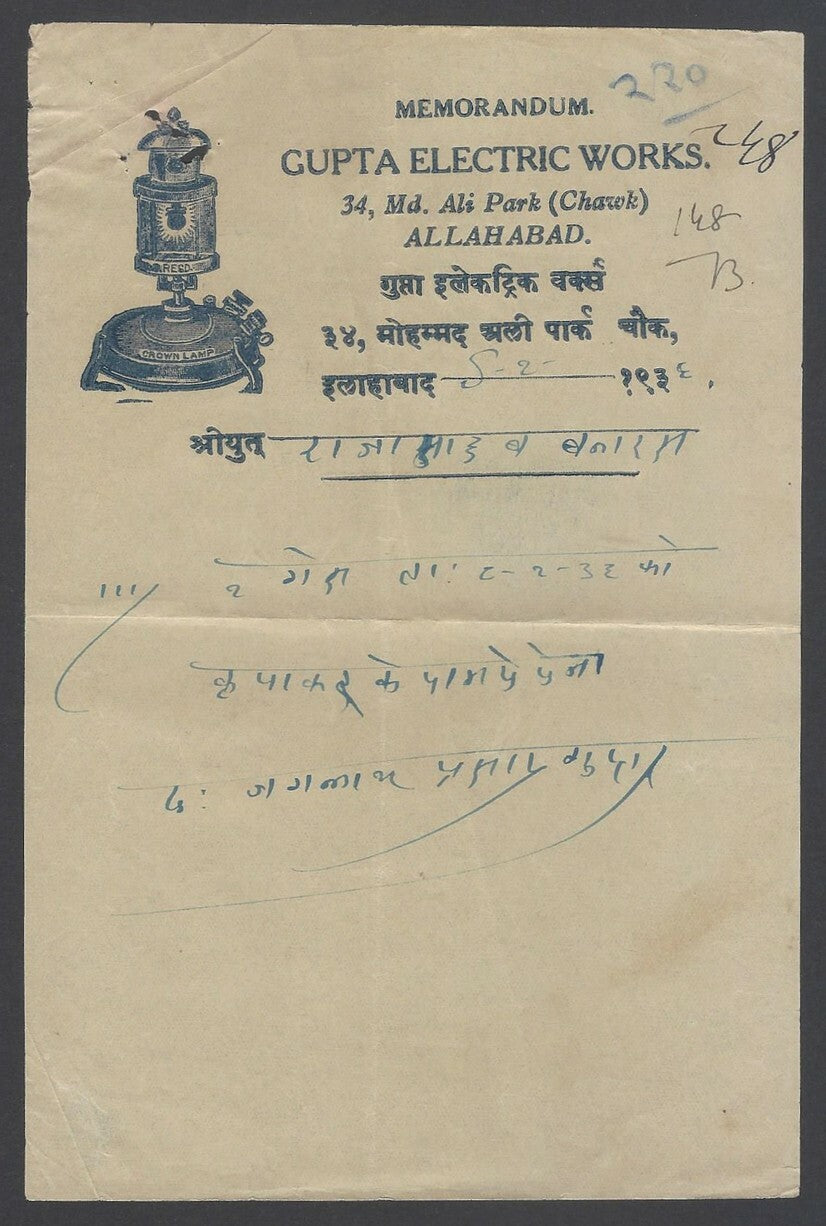 220
MEMORANDUM.
GUPTA ELECTRIC WORKS.
248
34, Md. Ali Park (Chawk)
148
ALLAHABAD.
B.
REGD.
CROWN LAMP
गुप्ता इलेकट्रिक वर्क्स
३४, मोहम्मद अली पार्क चौक,
इलाहाबाद -२- १९३६.
श्रीयुत् राजा साहब बनारस
२ गेस ता: ८-२-३६ को
कृपा करके
द: जगन्नाथ प्रसाद गुप्ता